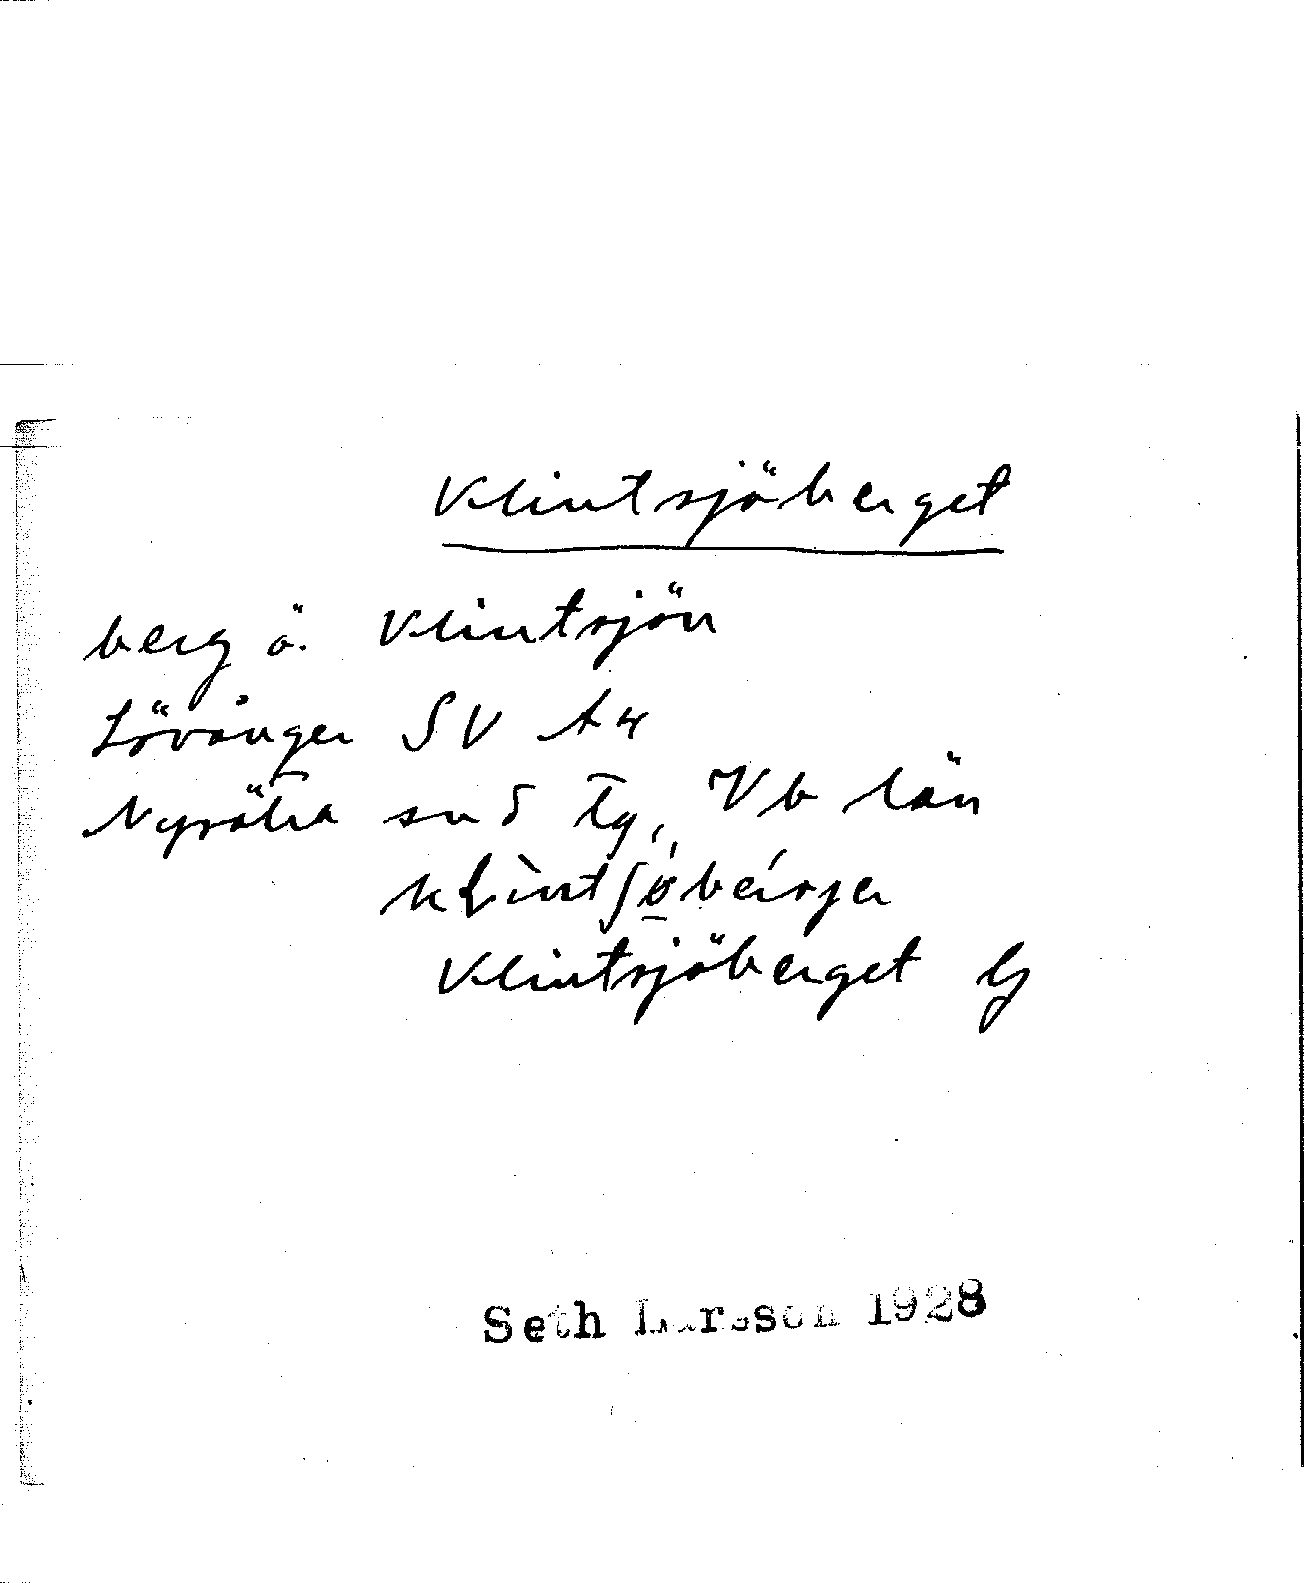 Klintsjöberget
berg ö. Klintsjön
Lövånger SV A4
Nysätra snd Tg, Vb län
Klintsjöberget G
Seth Larsson 1928